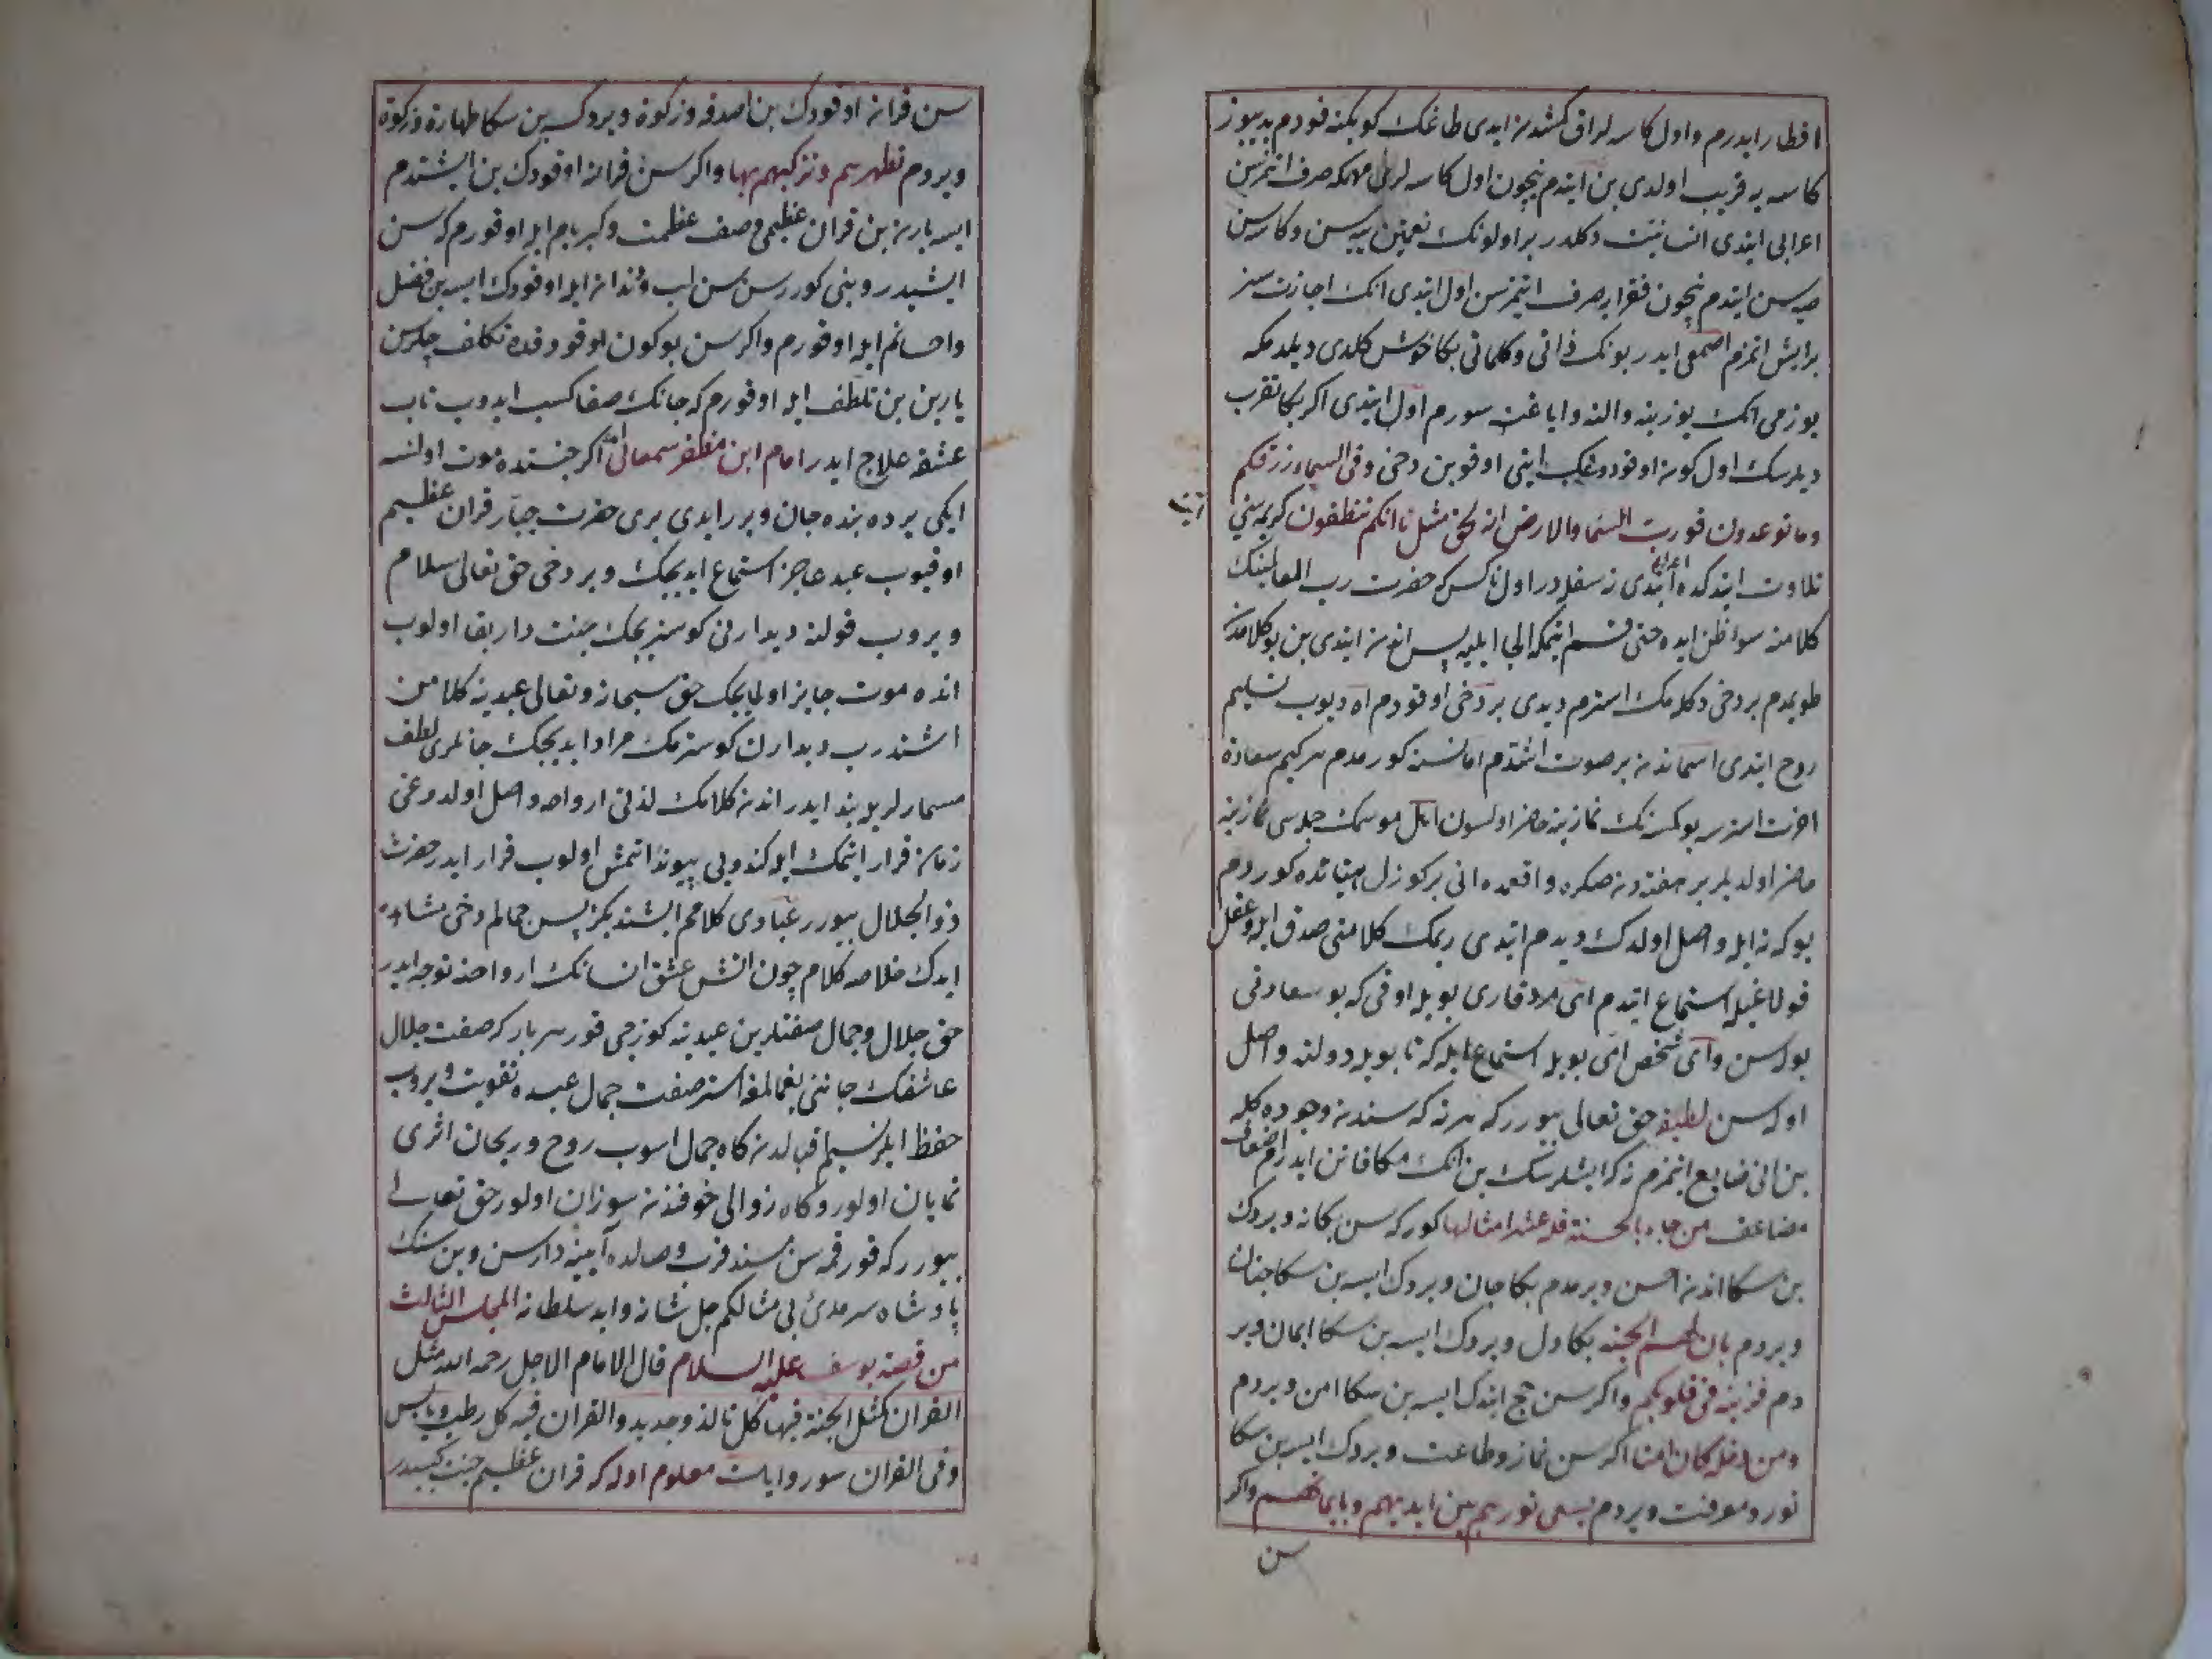 افطار ایدرم و اول کاسه لر اق کشدنه ایدی طاغک کوبکنه قودم یدیوز
کاسه یه قریب اولدی بن ایتدم نیچون اول کاسه لری مهمانکه صرف اتمزسن
اعرابی ایتدی انسانیت دکلدر بر اولونک نعمتین ییه سن و کاسه سن
صیه سن ایتدم نیچون فقرایه صرف ایتمزسن اول ایتدی انک اجازتسز
بر ایش اتمزم اصمعی ایدر بونک ذاتی و کلماتی بکا خوش کلدی دیلدمکه
یوزمی انک یوزینه و النه و ایاغنه سورم اول ایتدی اکر بکا تقرب
دیلرسک اول کون اوقودوغک ایتی اوقو بن دخی وفی السماء رزقکم
وما توعدون فورب السماء والارض انه لحق مثل ما انکم تنطقون کریمه سنی
تلاوت ایتدکده اعرابی ایتدی نه سفله در اول ناکس که حضرت رب العالمینک
کلامنه سوء ظن ایده حتی قسم ایتمکه الجا ایلیه پس اندن ایتدی بن بو کلامدن
طویمدم بر دخی دکلمک استرم دیدی بر دخی اوقودم اه دیوب تسلیم
روح ایتدی اسماندن بر صوت اشتدم اما نسنه کورمدم هر کیم سعادة
اخرت استرسه بو کمسنه نک نمازینه حاضر اولسون اهل موسمک جله سی نمازینه
حاضر اولدیلر بر هفته دن صکره واقعه ده انی بر کوزل هیئاتده کوردم
بو که نه ایله واصل اولدک دیدم ایتدی ربمک کلامنی صدق ایله و عقل
قولاغیله استماع ایتدم ای مرد قاری بویله اوقی که بو سعادتی
بوله سن و ای شخص امی بویله استماع ایله که تا بویله دولته واصل
اوله سن لطیفه حق تعالی بیوررکه هر نه که سندن وجوده کله
بن انی ضایع اتمزم نه که ایشلرسک بن انک مکافاتن ایدرم اضعاف
مضاعف من جاء بالحسنة فله عشر امثالها کورکه سن بکا نه ویردک
بن سکا اندن احسن ویرمدم بکا جان ویردک ایسه بن سکا جنان
ویردم بان لهم الجنه بکا دل ویردک ایسه بن سکا ایمان ویر
دم فزینه فی قلوبکم واکر سن حج ایتدک ایسه بن سکا امن ویردم
ومن دخله کان امنا اکر سن نماز وطاعت ویردک ایسه بن سکا
نور و معرفت ویردم یسعی نورهم بین ایدیهم وبایمانهم واکر
سن
سن قرانه اوقودک بن صدقه و زکوة ویردک بن سکا طهارة و زکوة
ویردم تطهرهم وتزکیهم بها واکر سن قرانه اوقودک بن ایشتدم
ایسه یارین بن قران عظیمی وصف عظمت و کبریام ایله اوقورم که سن
ایشیدر و بنی کوررسن سن لب و دندانه ایله اوقودک ایسه بن فضل
واحسانم ایله اوقورم واکر سن بوکون اوقودقده تکلف چکرسن
یارین بن تلطف ایله اوقورم که جانک صفا کسب ایدوب تاب
عشقه علاج ایدر امام ابن مظفر سمعانی اکر جنتده موت اولسه
ایکی یرده بنده جان ویررایدی بری حضرت جبار قران عظیم
اوقیوب عبد عاجز استماع ایدیجک و بر دخی حق تعالی سلام
ویروب قولنه دیدارنی کوستریجک جنت دار بقا اولوب
انده موت جایز اولمایجک حق سبحانه وتعالی عبدینه کلامن
اشتدرب دیدارن کوسترمک مراد ایدیجک جانلری لطف
مسمارلریله بند ایدر اندن کلامک لذتی ارواحه واصل اولدوغی
زمانه قرار ایتمک ایله کندویی پیوند اتمش اولوب قرار ایدر حضرت
ذوالجلال بیورر عبادی کلامم ایشتدیکز پس جمالم دخی مشاهده
ایدک خلاصه کلام چون اتش عشق انسانک ارواحنه توجه ایدر
حق جلال و جمال صفتلرین عبدینه کوزجی قور هر بار که صفت جلال
عاشقک جاننی یغمالمغه استر صفت جمال عبده تقویت ویروب
حفظ ایلر نسیم اقبالدن کاه جمال اسوب روح و ریحان اثری
نمایان اولور و کاه زوالی خوفندن سوزان اولور حق تعالی
بیوررکه قورقمه سن مسند قرب وصالده آیینه دارسن و بن سنک
پادشاه سرمدی بی مثالکم جل شانه وابد سلطانه المجلس الثالث
من قصة یوسف علیه السلام قال الامام الاجل رحمه الله مثل
القران کمثل الجنة فیها کل تالد وجدید والقران فیه کل رطب ویابس
وفی القران سور وایات معلوم اوله که قران عظیم جنت کبیدر